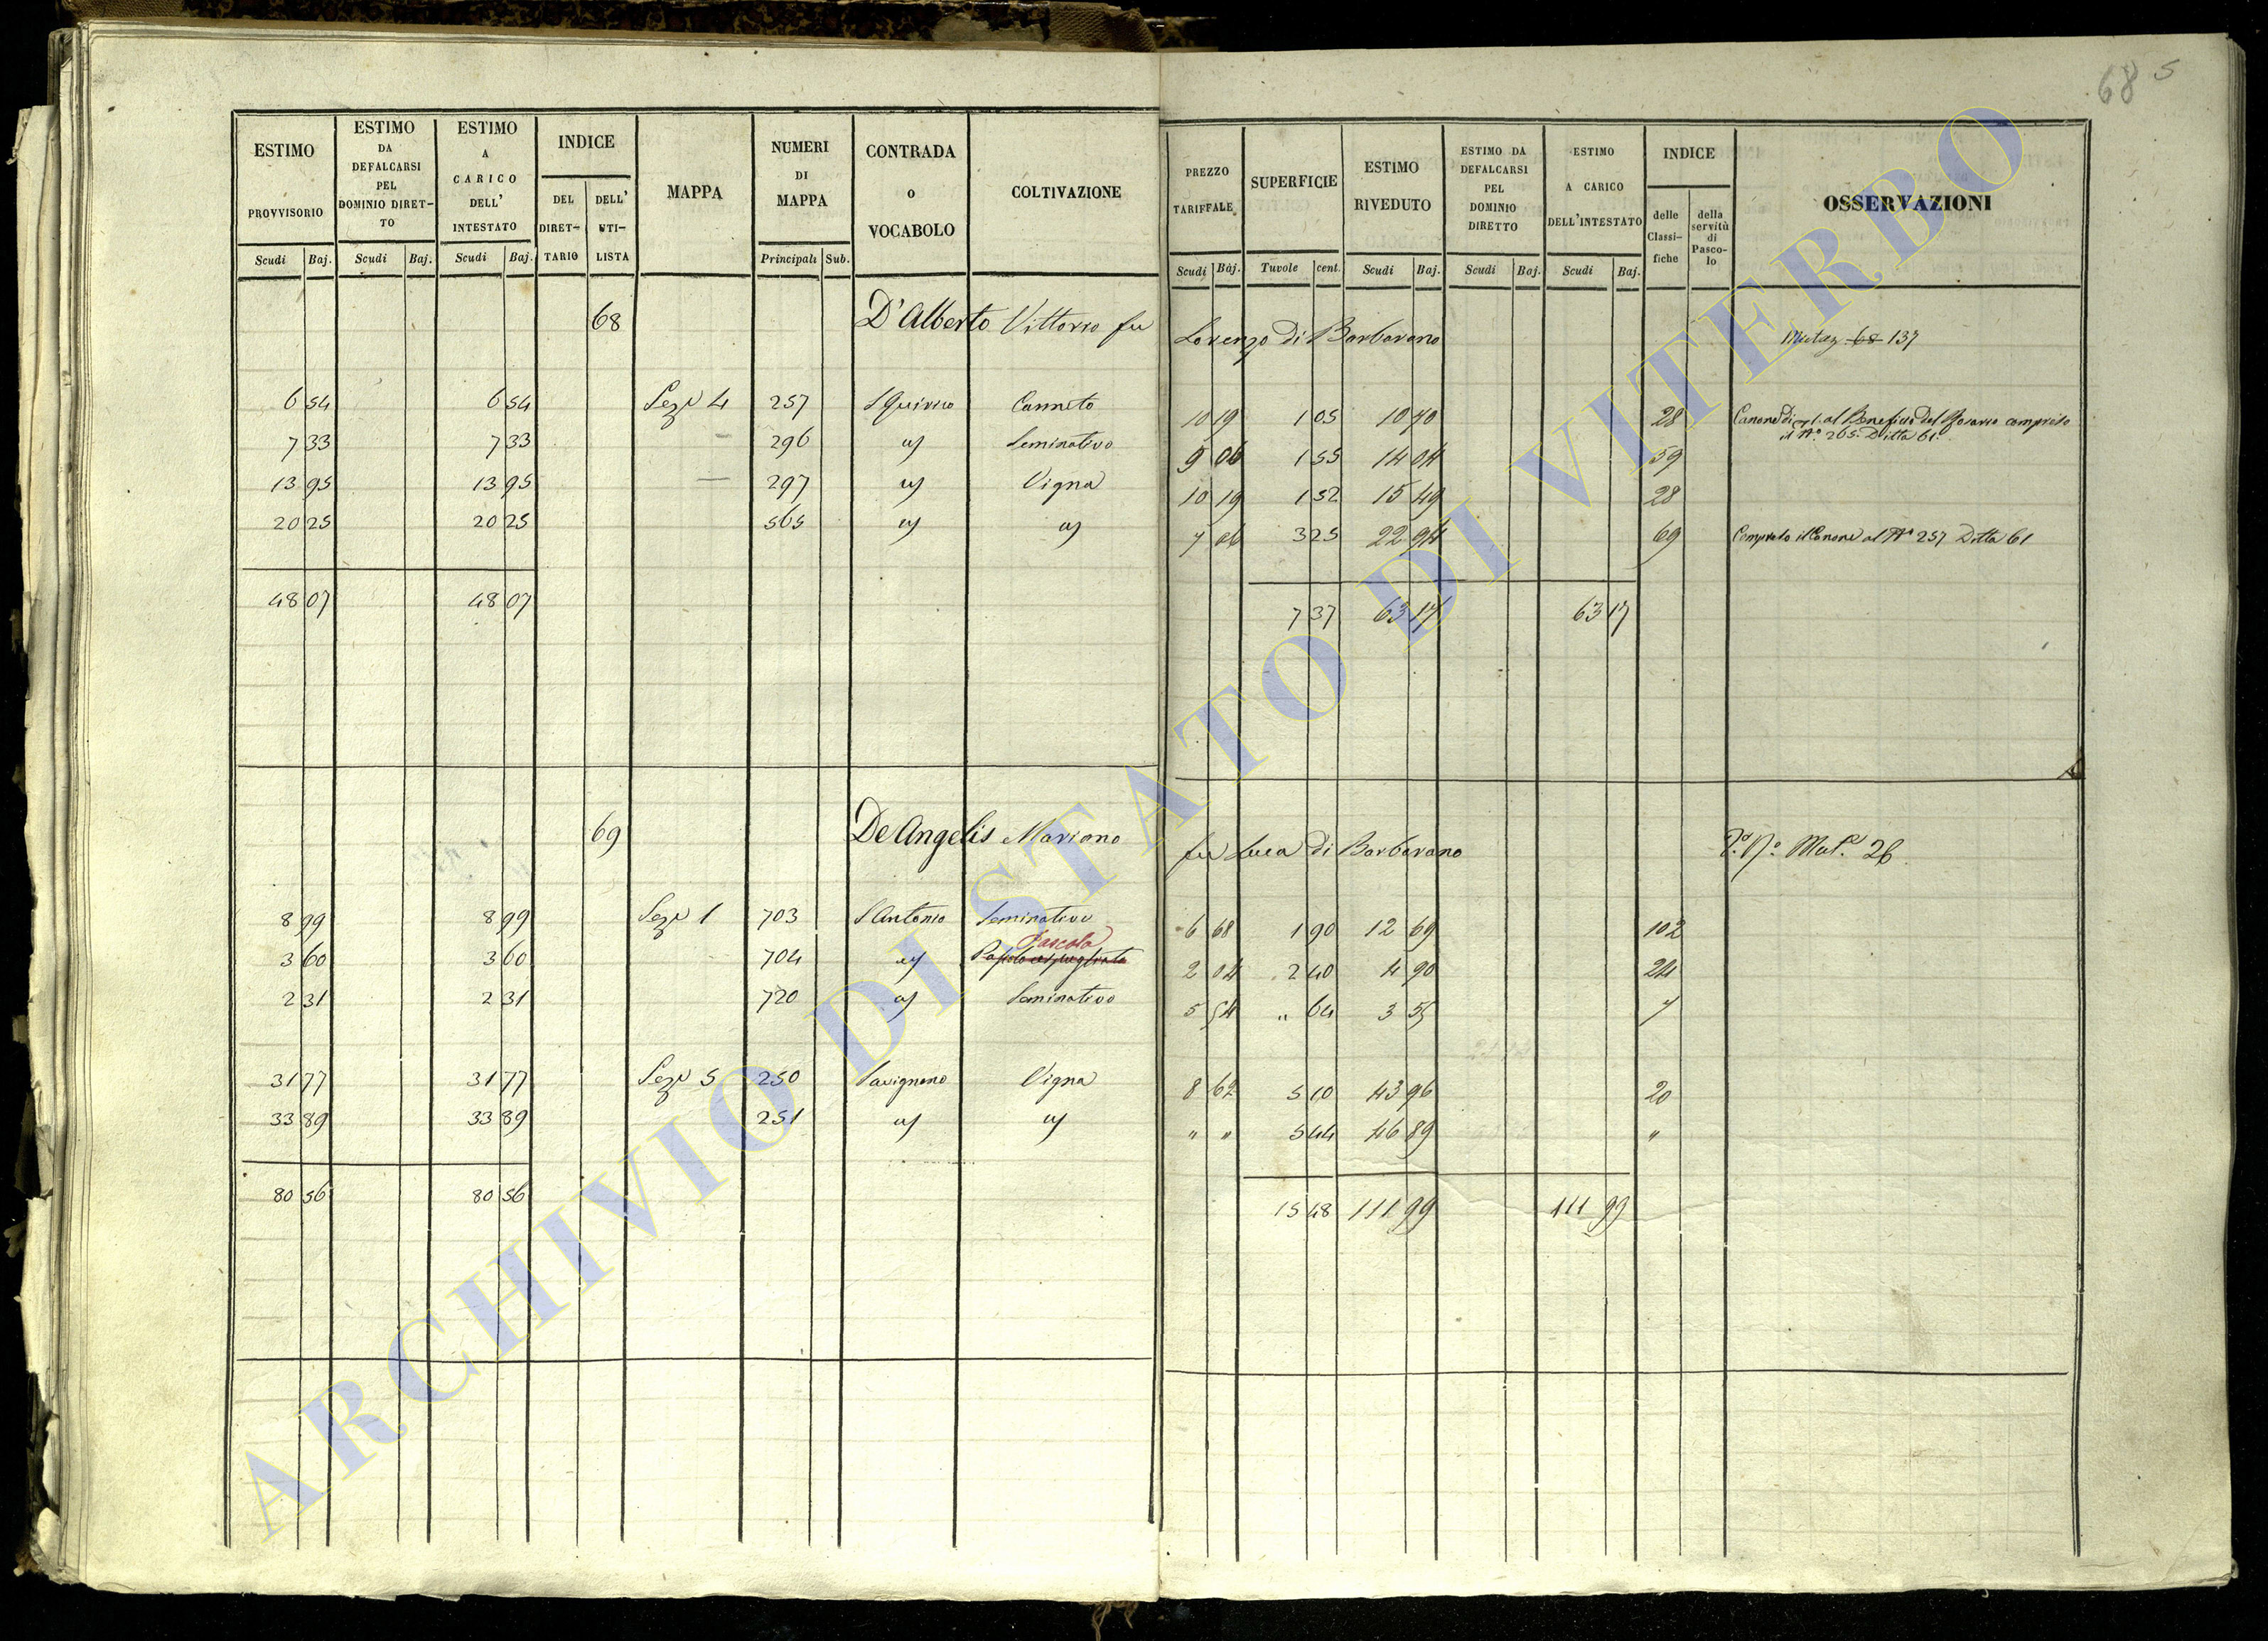 68 5
ESTIMO PROVVISORIO
ESTIMO DA DEFALCARSI PEL DOMINIO DIRET-TO
ESTIMO A CARICO DELL' INTESTATO
INDICE
DEL DIRET-TARIO
DELL' UTI-LISTA
MAPPA
NUMERI DI MAPPA
CONTRADA o VOCABOLO
COLTIVAZIONE
PREZZO TARIFFALE
SUPERFICIE
ESTIMO RIVEDUTO
ESTIMO DA DEFALCARSI PEL DOMINIO DIRETTO
ESTIMO A CARICO DELL'INTESTATO
INDICE
delle Classi-fiche
della servitù di Pasco-lo
OSSERVAZIONI
Scudi Baj. Scudi Baj. Scudi Baj. Principali Sub. Scudi Baj. Tavole cent. Scudi Baj. Scudi Baj. Scudi Baj.
68 D'Alberto Vittorio fu Lorenzo di Barbarano Mutaz. 68 137
6 54 6 54 Sezne 4 257 S Quirico Canneto 10 19 1 05 10 70 28 Canone di al Beneficio del Rosario compreso
il No. 265. Ditta 61.
7 33 7 33 296 Seminativo 9 06 1 55 14 04 59
13 95 13 95 — 297 Vigna 10 19 1 52 15 49 28
20 25 20 25 565 7 06 3 25 22 94 69 Compreso il Canone al No 257 Ditta 61
48 07 48 07 7 37 63 17 63 17
69 De Angelis Mariano fu Luca di Barbarano 26
8 99 8 99 Sezne 1 703 S Antonio Seminativo 6 68 1 90 12 69 102
Pascolo
3 60 3 60 704 2 04 2 40 4 90 24
2 31 2 31 720 Seminativo 5 54 " 64 3 55 7
31 77 31 77 Sezne 5 250 Savignano Vigna 8 62 5 10 43 96 20
33 89 33 89 251 " " 5 44 46 89 "
80 56 80 56 15 48 111 99 111 99
ARCHIVIO DI STATO DI VITERBO